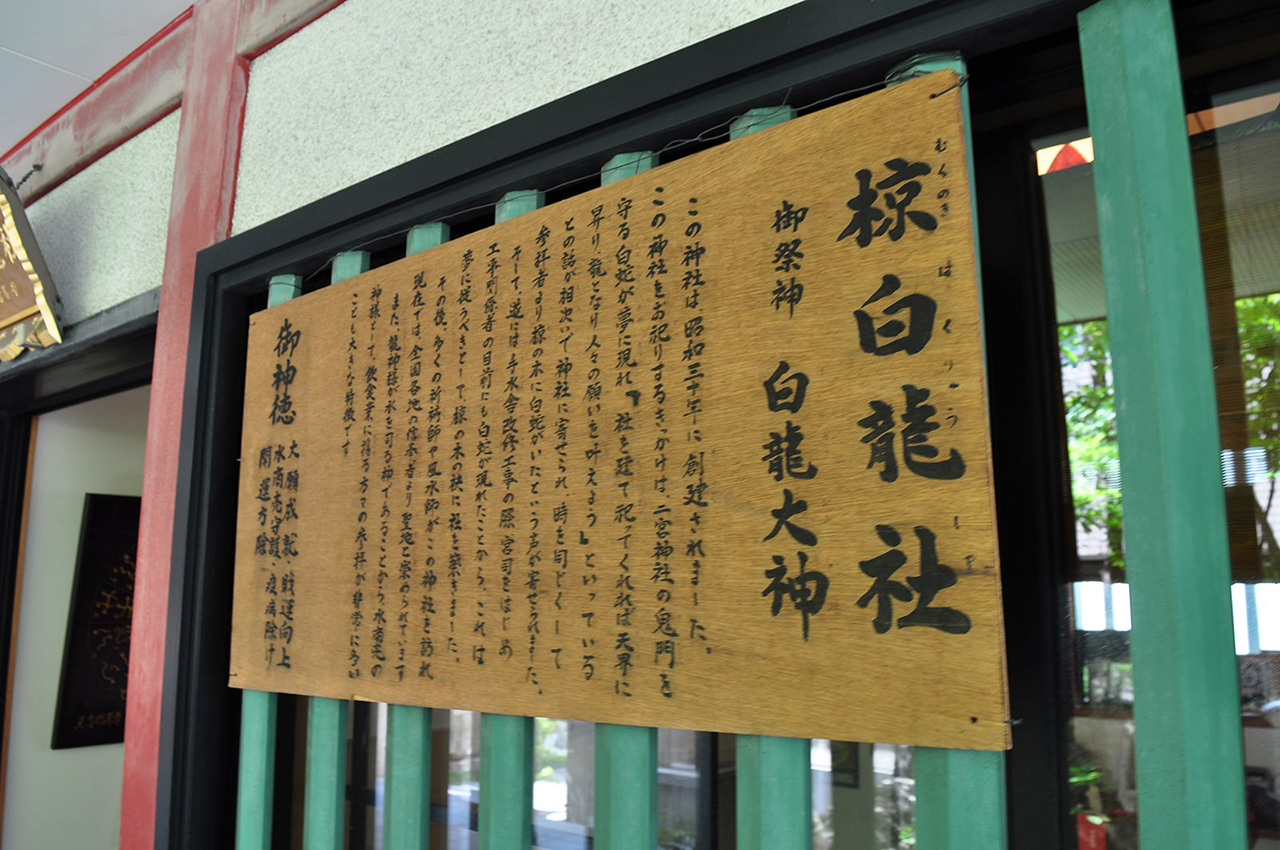 椋白龍社
むくのき はくりゅう しゃ
御祭神 白龍大神
この神社は、昭和三十年に創建されました。
この神社をお祀りするきっかけは、二宮神社の鬼門を
守る白蛇が夢に現れ『社を建て祀ってくれれば天界に
昇り龍となり人々の願いを叶えよう』といっている
との話が相次いで神社に寄せられ、時を同じくして
参拝者より椋の木に白蛇がいたという声が寄せられました。
そして、遂には手水舎改修工事の際、宮司をはじめ
工事関係者の目前にも白蛇が現れたことから、これは
夢に従うべきとして、椋の木の袂に社を築きました。
その後、多くの祈祷師や風水師がこの神社を訪れ
現在では、全国各地の信奉者より聖地と崇められています
また、龍神様が水を司る神であることから水商売の
神様として、飲食業に携る方々の参拝が非常に多い
ことも大きな特徴です
御神徳
大願成就、財運向上
水商売守護、疫病除け
開運方除